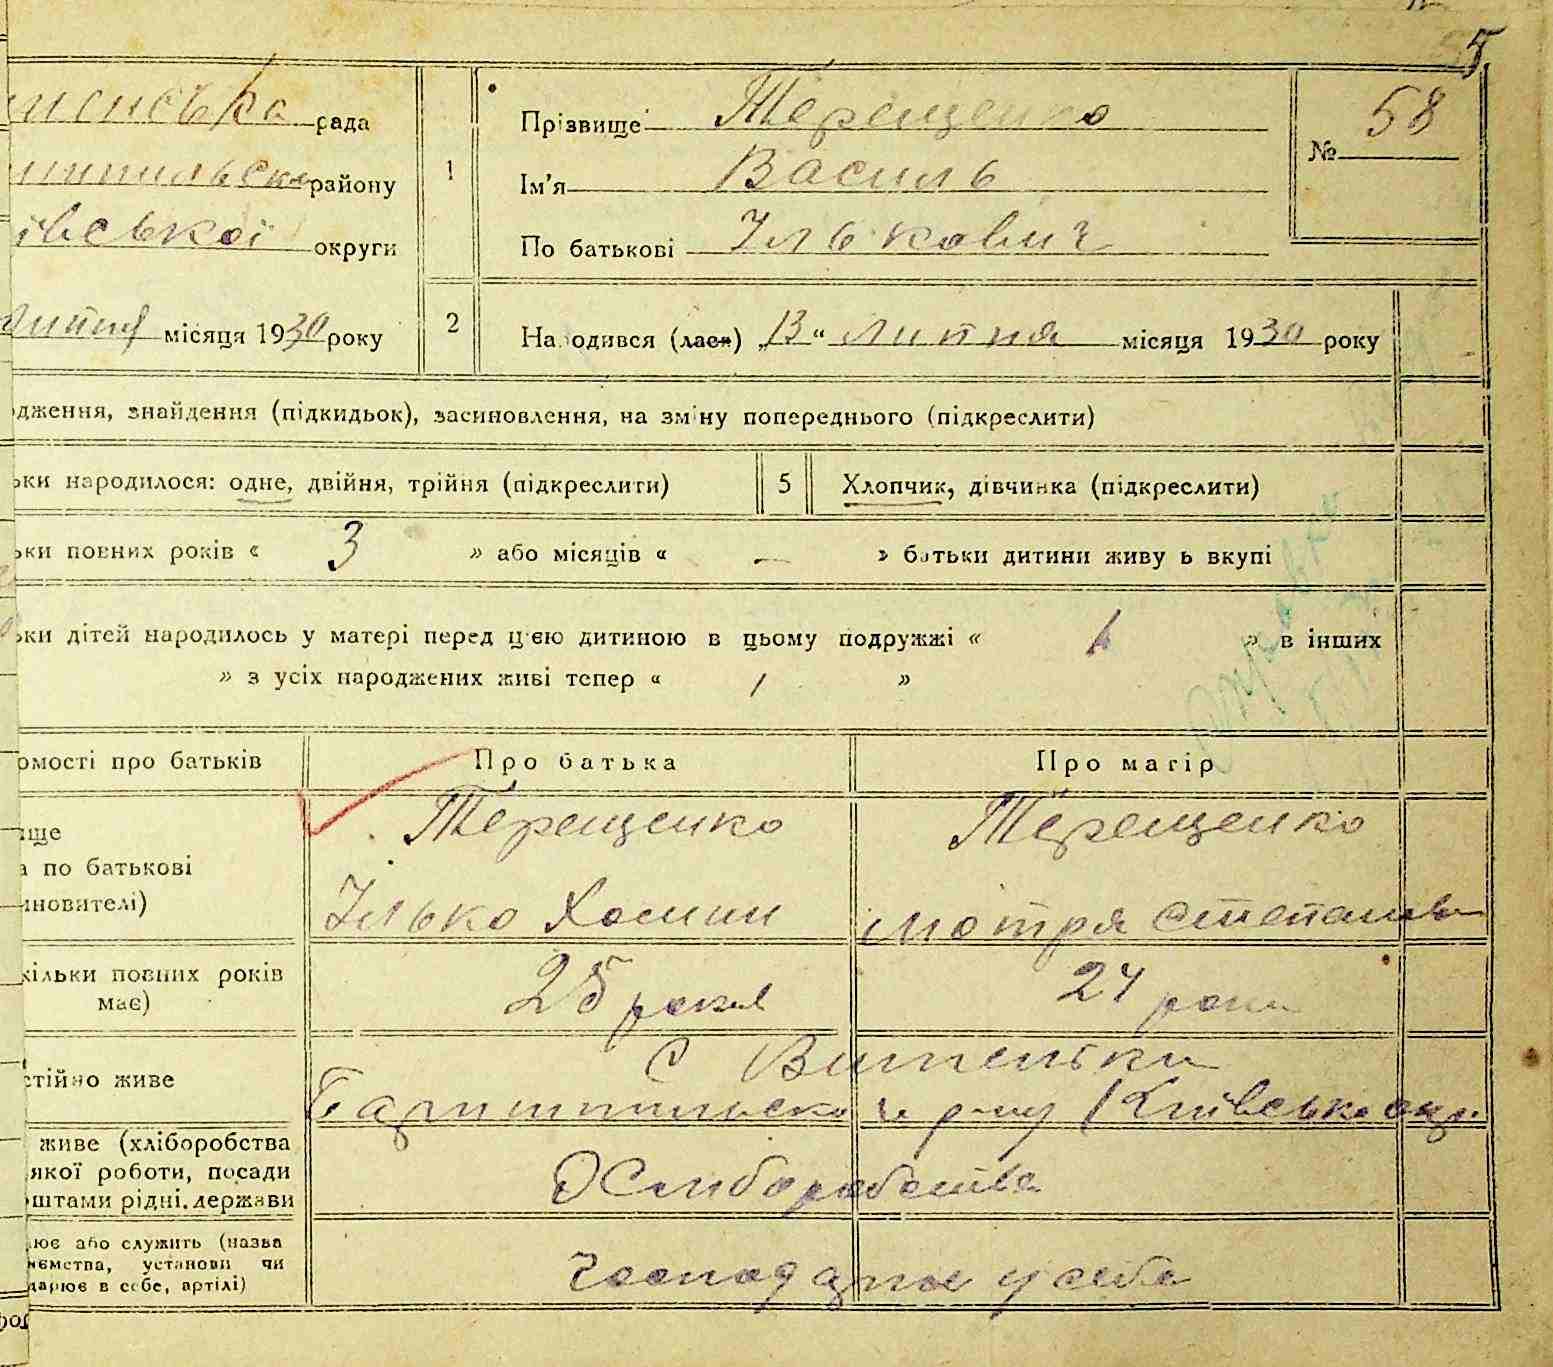 55
рада
району
івської округи
липня місяця 1930 року
1
Прізвище Терещенко
Ім'я Василь
По батькові Ількович
№ 58
2
На одився (лася) „13“ липня місяця 1930 року
дження, знайдення (підкидьок), засиновлення, на зміну попереднього (підкреслити)
ьки народилося: одне, двійня, трійня (підкреслити)
5
Хлопчик, дівчинка (підкреслити)
ьки повних років « 3 » або місяців « — » батьки дитини живу ь вкупі
ьки дітей народилось у матері перед цією дитиною в цьому подружжі « 1 » в інших
» з усіх народжених живі тепер « 1 »
омості про батьків
Про батька
Про матір
ище
а по батькові
иновителі)
Терещенко
Ілько Хомин
Терещенко
Мотря Степанів
кільки повних років
має)
25 років
24 роки
стійно живе
с Випеньки
Баришпильсько го р-ну Київської окр.
живе (хліборобства
якої роботи, посади
оштами рідні, держави
Хліборобства
ює або служить (назва
иємства, установи чи
дарює в себе, артілі)
господарює у себе